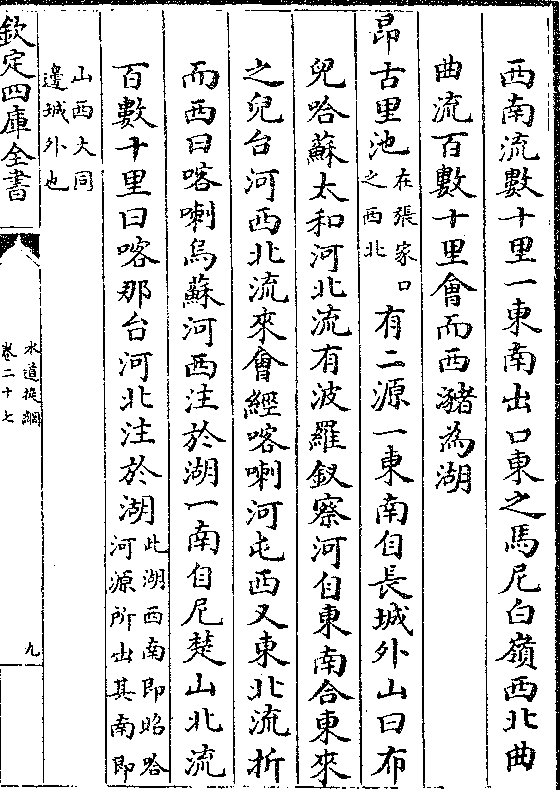 西南流數十里一東南出口東之馬尼白嶺西北曲
曲流百數十里會而西瀦為湖
昂古里池在張家口之西北有二源一東南自長城外山曰布
兒哈蘇太和河北流有波羅釵察河自東南合東來
之兒台河西北流來會經喀喇河屯西又東北流折
而西曰喀喇烏蘇河西注於湖一南自尼楚山北流
百數十里曰喀那台河北注於湖此湖西南即昭哈河源所出其南即
山西大同邊城外也
欽定四庫全書
水道提綱
卷二十七
九